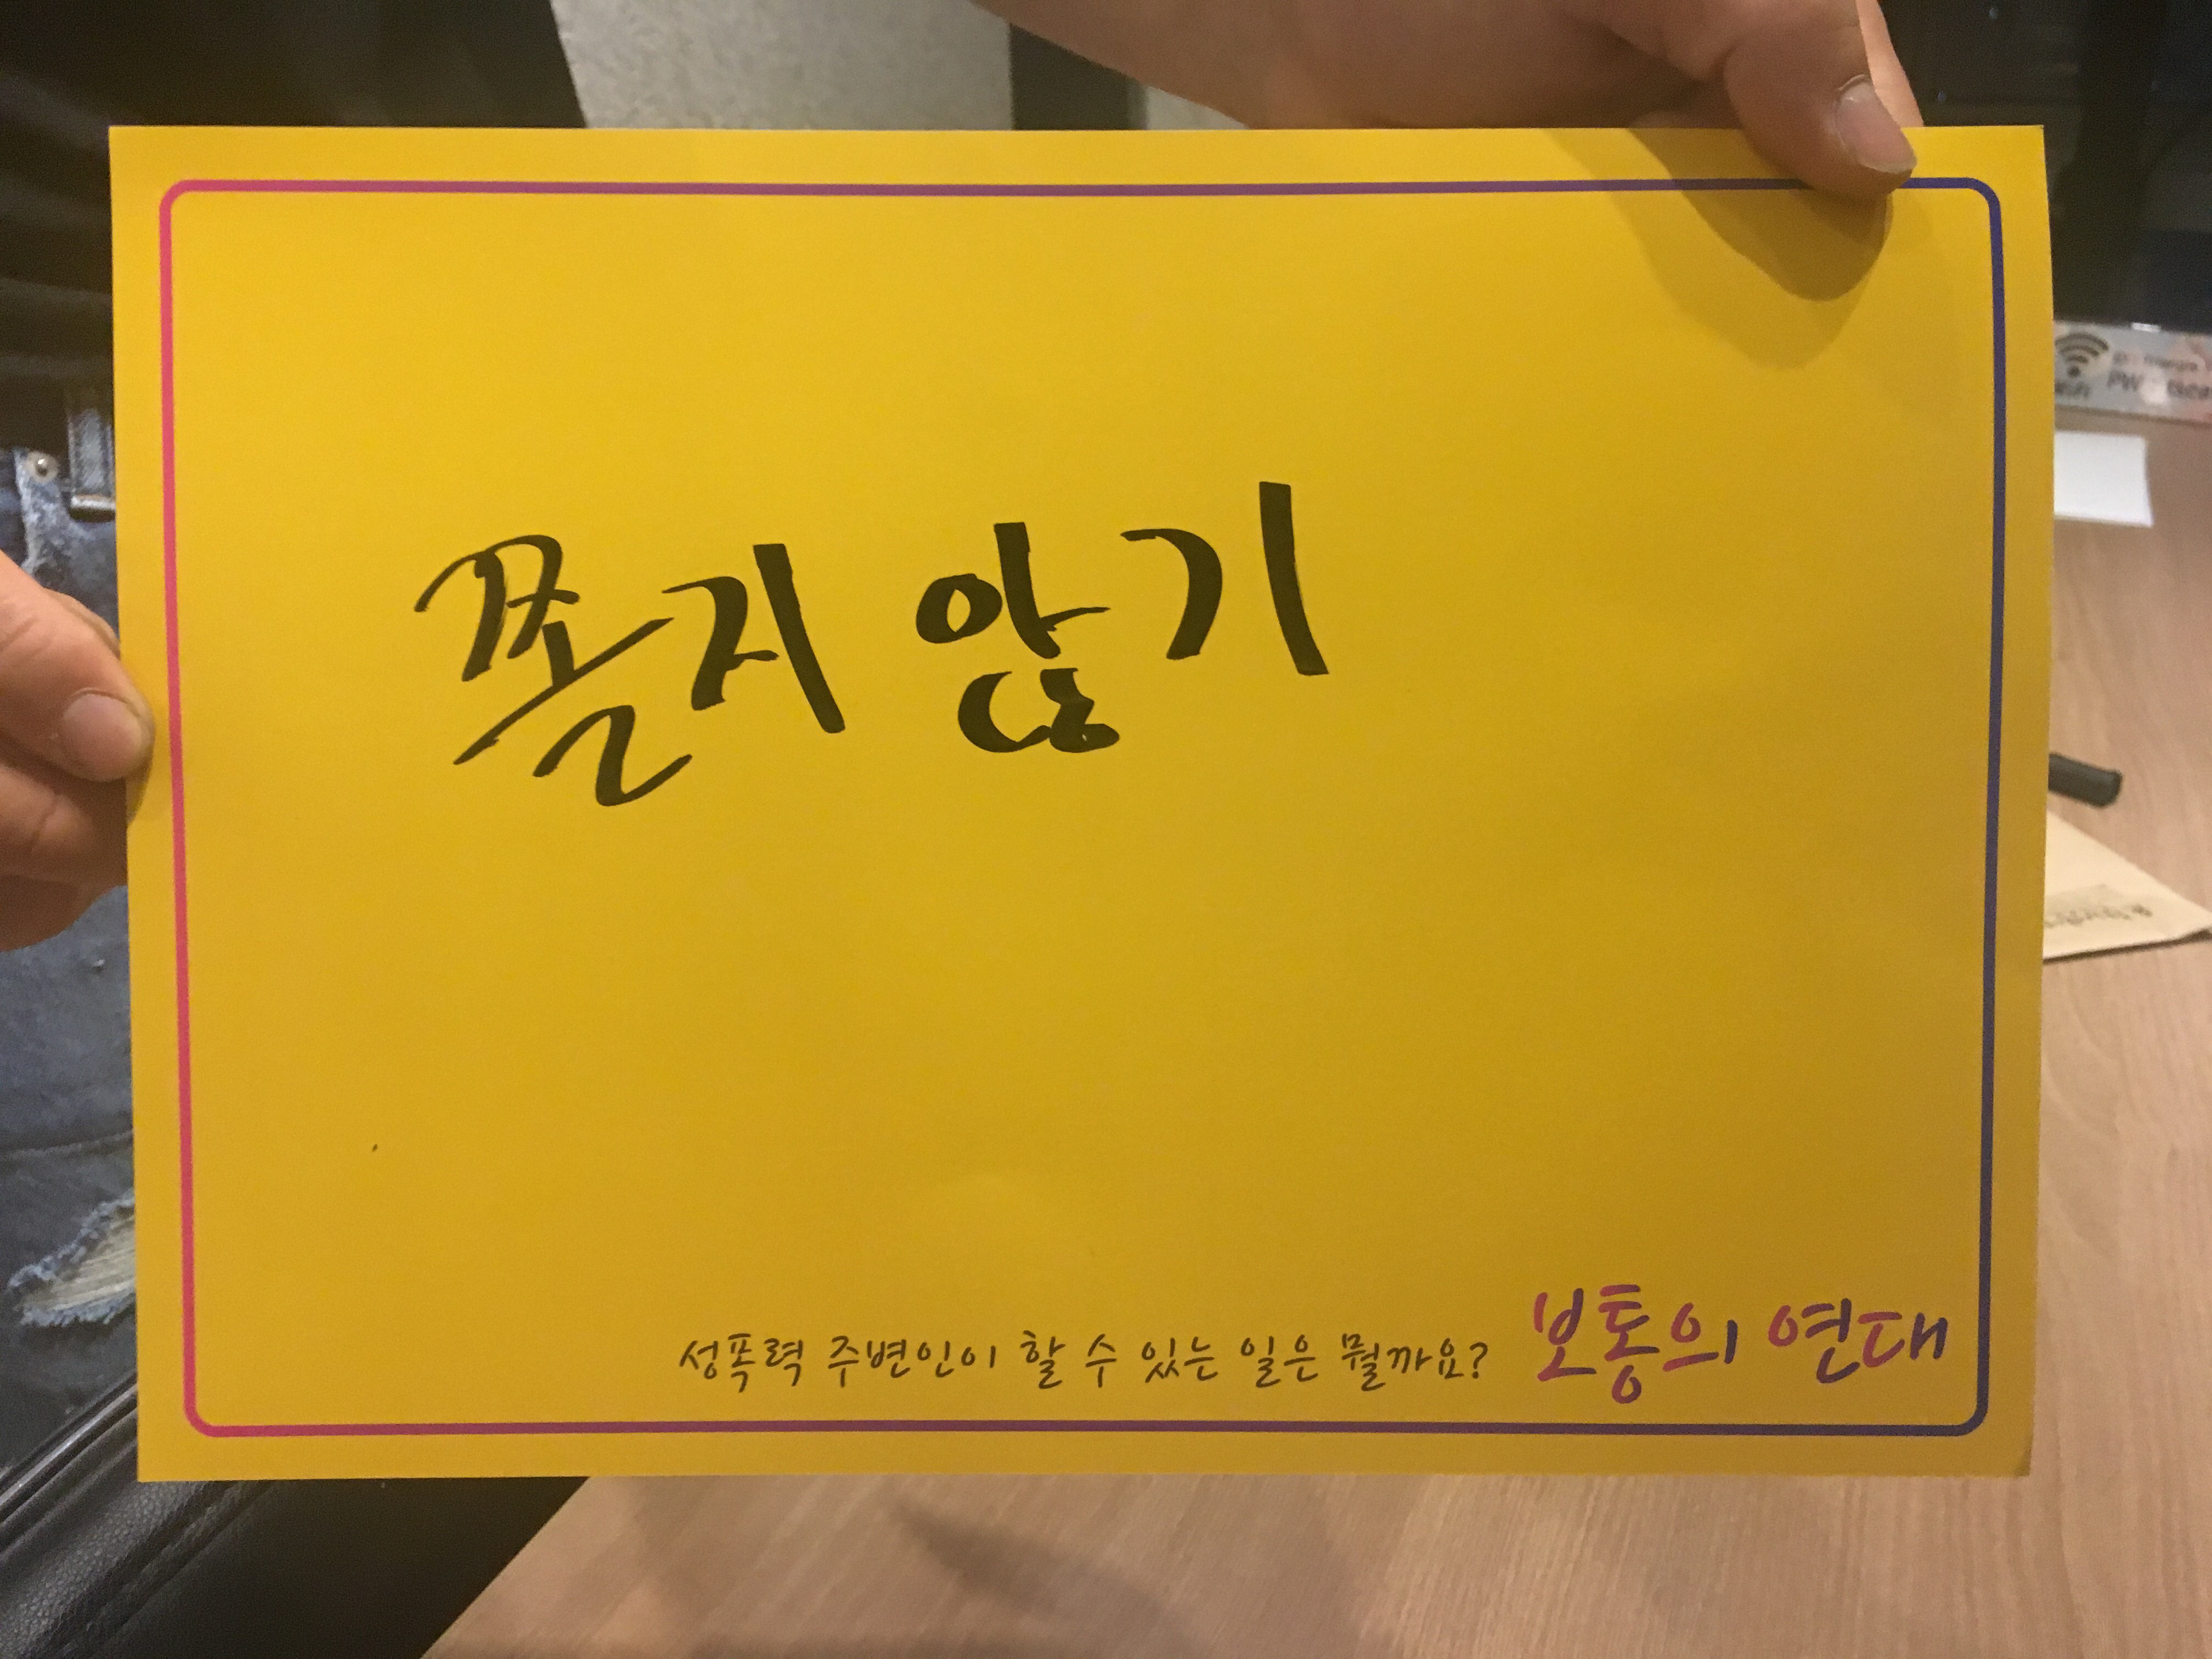 쫄지 않기
성폭력 주변인이 할 수 있는 일은 뭘까요? 보통의 연대
WiFi